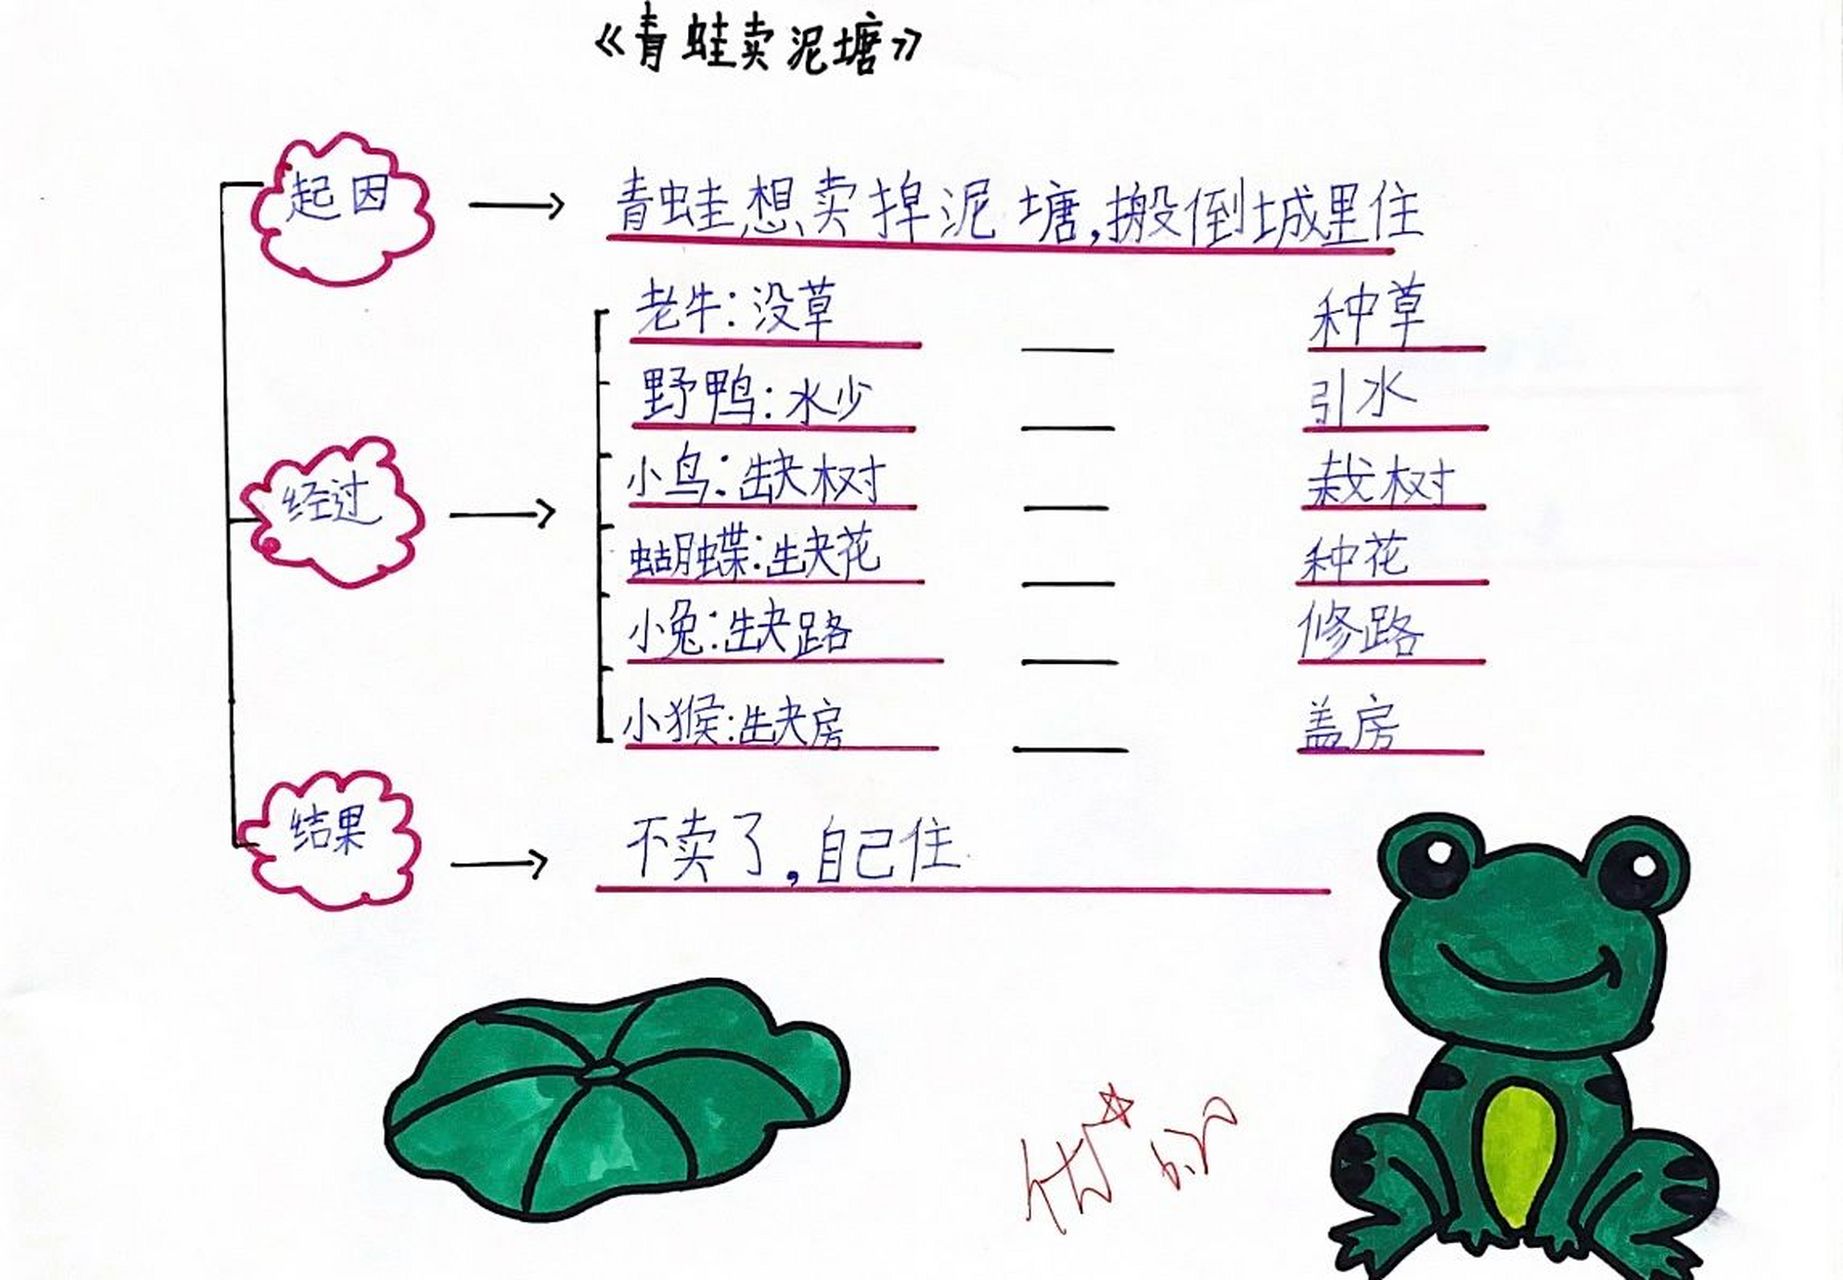 《青蛙卖泥塘》
起因
青蛙想卖掉泥塘,搬倒城里住
老牛:没草 种草
野鸭:水少 引水
小鸟:缺树 栽树
经过
蝴蝶:缺花 种花
小兔:缺路 修路
小猴:缺房 盖房
结果
不卖了,自己住
优